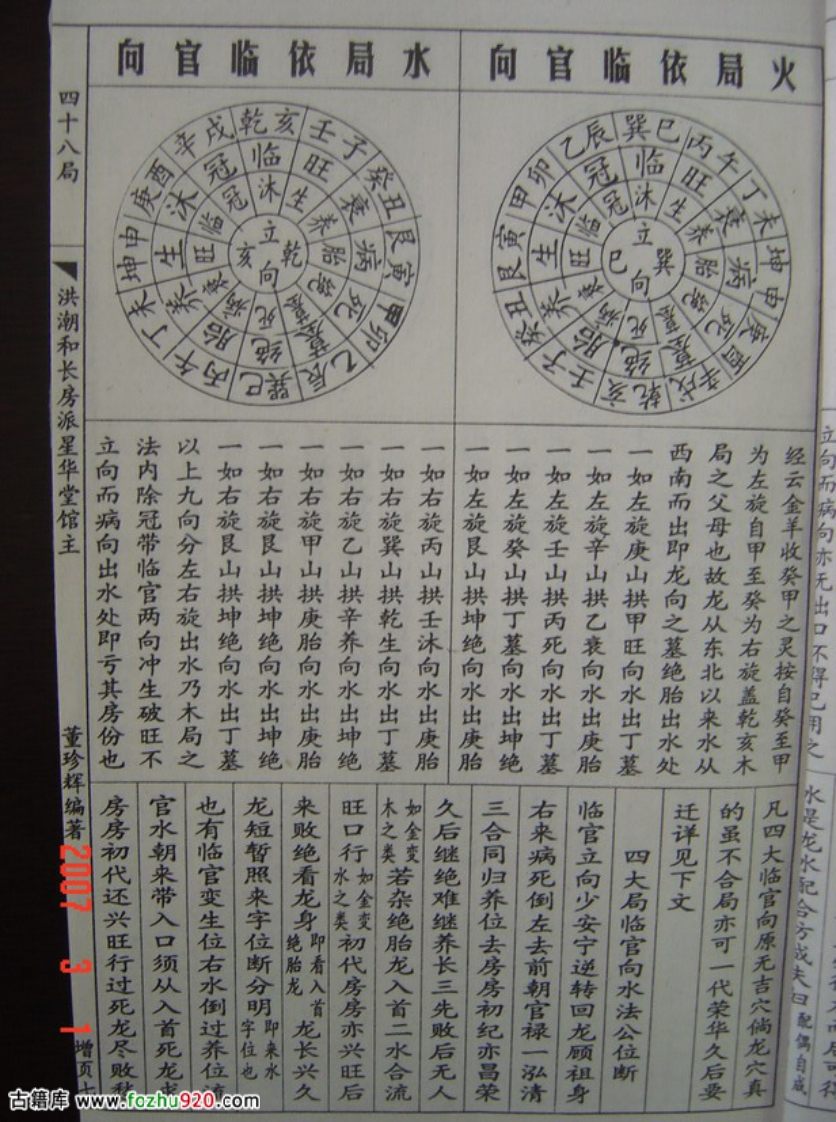 火局依临官向
巽巳 丙午 丁未 坤申 庚酉 辛戌 乾亥 壬子 癸丑 艮寅 甲卯 乙辰
临 旺 衰 病 死 墓 绝 胎 养 生 沐 冠
沐 生 养 胎 绝 墓 死 病 衰 旺 临 冠
立向
巽巳
水局依临官向
乾亥 壬子 癸丑 艮寅 甲卯 乙辰 巽巳 丙午 丁未 坤申 庚酉 辛戌
临 旺 衰 病 死 墓 绝 胎 养 生 沐 冠
沐 生 养 胎 绝 墓 死 病 衰 旺 临 冠
立向
乾亥
经云金羊收癸甲之灵按自癸至甲
为左旋自甲至癸为右旋盖乾亥木
局之父母也故龙从东北以来水从
西南而出即龙向之墓绝胎出水处
一如左旋庚山拱甲旺向水出丁墓
一如左旋辛山拱乙衰向水出庚胎
一如左旋壬山拱丙死向水出丁墓
一如左旋癸山拱丁墓向水出坤绝
一如左旋艮山拱坤绝向水出庚胎
一如右旋丙山拱壬沐向水出庚胎
一如右旋巽山拱乾生向水出丁墓
一如右旋乙山拱辛养向水出坤绝
一如右旋甲山拱庚胎向水出庚胎
一如右旋艮山拱坤绝向水出坤绝
一如右旋艮山拱坤绝向水出丁墓
以上九向分左右旋出水乃木局之
法内除冠带临官两向冲生破旺不
立向而病向出水处即亏其房份也
凡四大临官向原无吉穴倘龙穴真
的虽不合局亦可一代荣华久后要
迁详见下文
四大局临官向水法公位断
临官立向少安宁逆转回龙顾祖身
右来病死倒左去前朝官禄一泓清
三合同归养位去房房初纪亦昌荣
久后继绝难继养长三先败后无人
如金变木之类若杂绝胎龙入首二水合流
旺口行如金变水之类初代房房亦兴旺后
来败绝看龙身即看入首绝胎龙龙长兴久
龙短暂照来字位断分明即来水字位也
也有临官变生位右水倒过养位流
官水朝来带入口须从入首死龙求
房房初代还兴旺行过死龙尽败愁
四十八局
洪潮和长房派星华堂馆主
董珍辉编著
增页七
立向而病向亦无出口不得已用之
水是龙水配合方成夫曰配偶自成
2007 3 1
古籍库 www.fozhu920.com